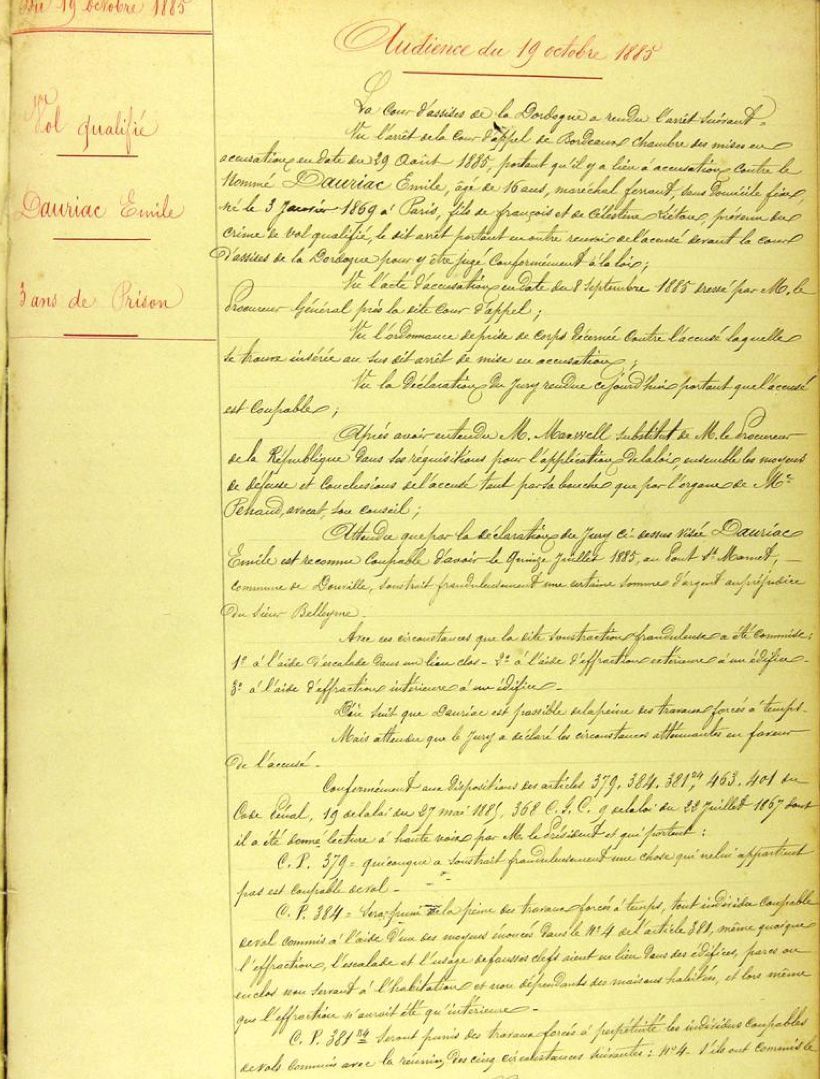 Du 19 octobre 1885
Vol qualifié
Dauriac Emile
3 ans de Prison
Audience du 19 octobre 1885
La Cour d'assises de la Dordogne a rendu l'arrêt suivant =
Vu l'arrêt de la Cour d'appel de Bordeaux chambre des mises en
accusation en date du 29 Août 1885, portant qu'il y a lieu à accusation contre le
Nommé Dauriac Emile, âgé de 16 ans, maréchal ferrant, sans domicile fixe,
né le 3 Janvier 1869 à Paris, fils de françois et de Célestine, prévenu du
crime de vol qualifié, le dit arrêt portant en outre renvoi de l'accusé devant la cour
d'assises de la Dordogne pour y être jugé Conformément à la loi;
Vu l'acte d'accusation en date du 8 Septembre 1885 dressé par M. le
Procureur Général près la dite Cour d'appel;
Vu l'ordonnance de prise de corps décernée contre l'accusé laquelle
se trouve insérée au sus dit arrêt de mise en accusation;
Vu la déclaration du Jury rendue cejourd'hui portant que l'accusé
est Coupable;
Après avoir entendu M. Maxwell substitut de M. le Procureur
de la République dans ses réquisitions pour l'application de la loi, ensemble les moyens
de défense et Conclusions de l'accusé tant par sa bouche que par l'organe de Me
Penaud, avocat, son conseil;
Attendu que par la déclaration du Jury ci-dessus visée Dauriac
Emile est reconnu Coupable d'avoir le Quinze Juillet 1885, au Pont St Mamet, —
commune de Douville, soustrait frauduleusement une certaine somme d'argent au préjudice
du sieur Belleyme.
Avec ces circonstances que la dite soustraction frauduleuse a été commise:
1º à l'aide d'escalade dans un lieu clos - 2º à l'aide d'effraction extérieure à un édifice -
3º à l'aide d'effraction intérieure à un édifice -
D'où suit que Dauriac est passible de la peine des travaux forcés à temps.
Mais attendu que le Jury a déclaré les circonstances atténuantes en faveur
de l'accusé.
Conformément aux dispositions des articles 379, 384, 381 n4, 463, 401 du
Code Pénal, 19 de la loi du 27 mai 1885, 368 C.I.C. 9 de la loi du 22 Juillet 1867 dont
il a été donné lecture à haute voix par Mr le Président et qui portent:
C. P. 379 = quiconque a soustrait frauduleusement une chose qui ne lui appartient
pas est coupable de vol -
C. P. 384 = Sera puni de la peine des travaux forcés à temps, tout individu coupable
de vol commis à l'aide d'un des moyens énoncés dans le nº 4 de l'article 381, même quoique
l'effraction, l'escalade et l'usage de fausses clefs aient eu lieu dans des édifices, parcs ou
enclos non servant à l'habitation et non dépendants des maisons habitées, et lors même
que l'effraction n'aurait été qu'intérieure -
C. P. 381 n4 Seront punis des travaux forcés à perpétuité les individus coupables
de vols commis avec la réunion des cinq circonstances suivantes: nº 4 - s'ils ont commis le